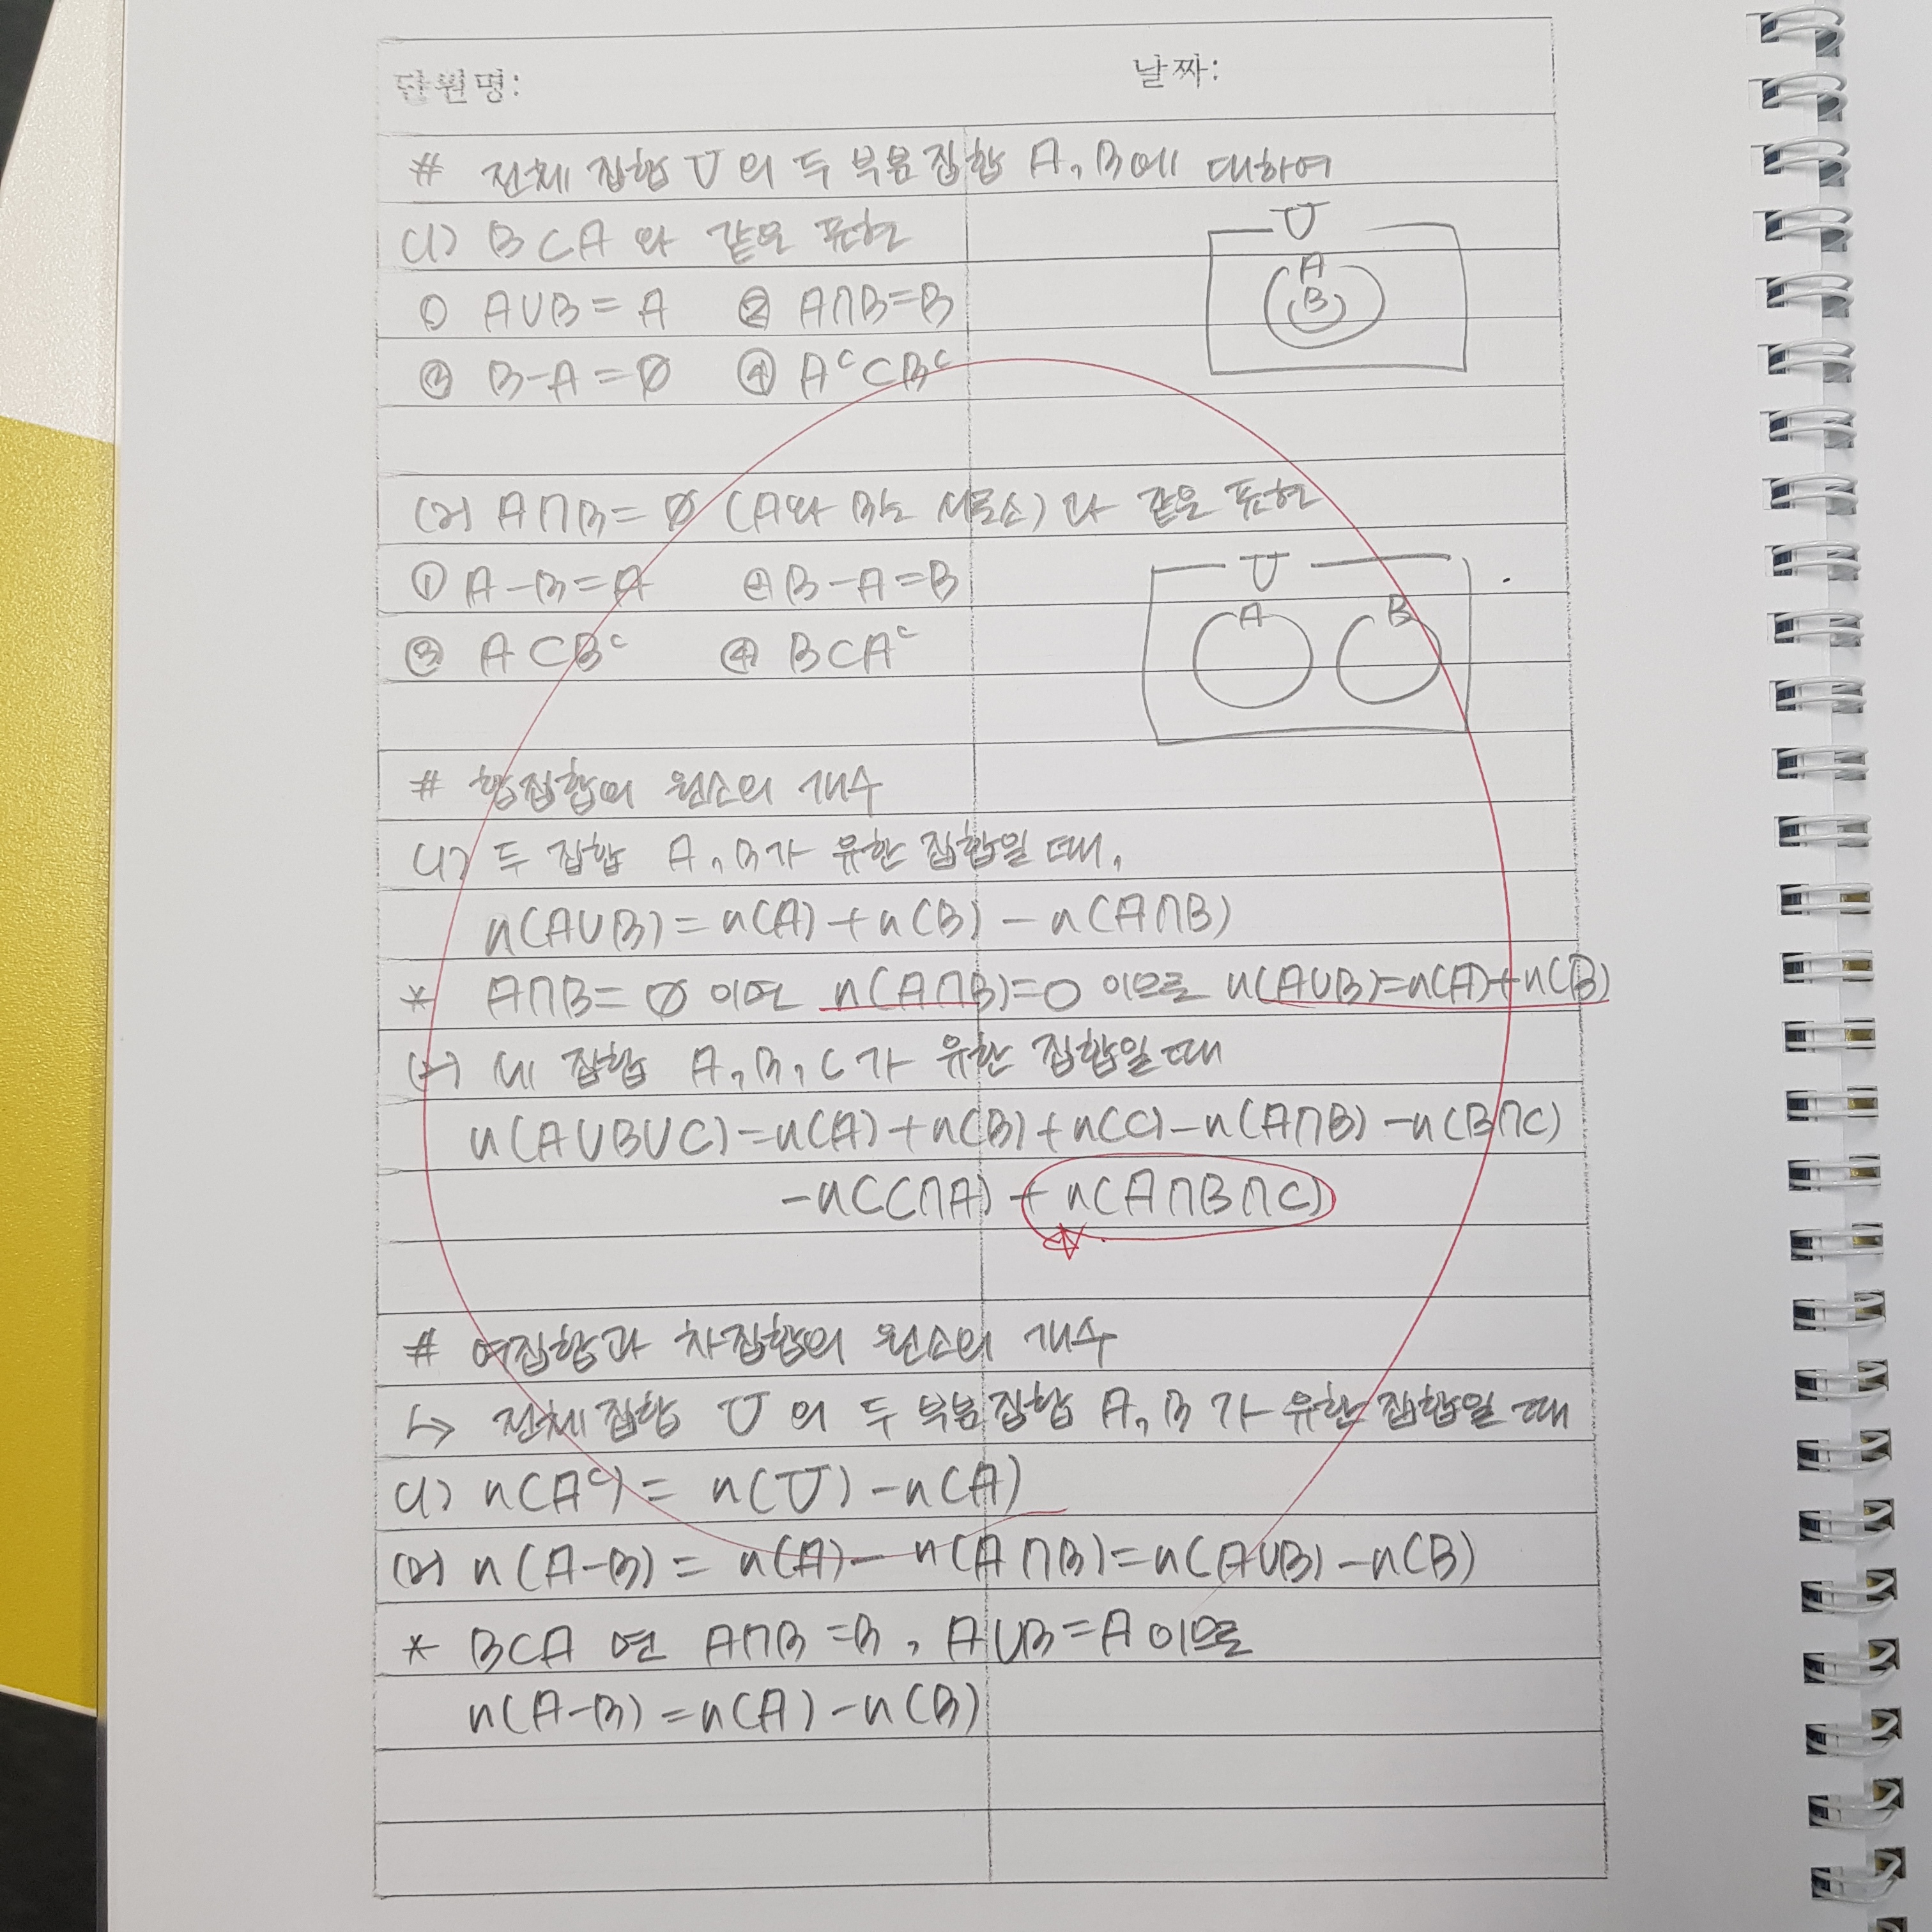 단원명: 날짜:
# 전체 집합 U의 두 부분집합 A, B에 대하여
(1) B⊂A 와 같은 표현
U
A
B
① A∪B=A ② A∩B=B
③ B-A=∅ ④ Aᶜ⊂Bᶜ
(2) A∩B=∅ (A와 B는 서로소)과 같은 표현
U
A B
① A-B=A ② B-A=B
③ A⊂Bᶜ ④ B⊂Aᶜ
# 합집합의 원소의 개수
(1) 두 집합 A, B가 유한 집합일 때,
n(A∪B)=n(A)+n(B)-n(A∩B)
* A∩B=∅ 이면 n(A∩B)=0 이므로 n(A∪B)=n(A)+n(B)
(2) 세 집합 A, B, C가 유한 집합일 때
n(A∪B∪C)=n(A)+n(B)+n(C)-n(A∩B)-n(B∩C)
-n(C∩A)+n(A∩B∩C)
# 여집합과 차집합의 원소의 개수
↳ 전체집합 U의 두 부분집합 A, B가 유한 집합일 때
(1) n(Aᶜ)=n(U)-n(A)
(2) n(A-B)=n(A)-n(A∩B)=n(A∪B)-n(B)
* B⊂A 면 A∩B=B, A∪B=A 이므로
n(A-B)=n(A)-n(B)